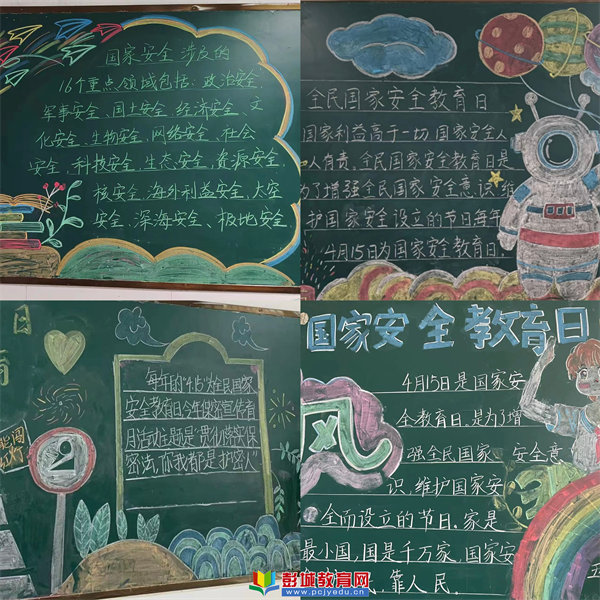 国家安全涉及的
16个重点领域包括：政治安全，
军事安全、国土安全、经济安全、文
化安全、生物安全、网络安全、社会
安全、科技安全、生态安全、资源安全
核安全、海外利益安全、太空
安全、深海安全、极地安全
全民国家安全教育日
国家利益高于一切国家安全人
人有责，全民国家安全教育日是
为了增强全民国家安全意识，维
护国家安全设立的节日每年
4月15日为国家安全教育日
日
育
每年的"4.15"为全民国家
安全教育日今年保密宣传教育
月活动主题是"贯彻落实保
密法，你我都是护密人"
闯
红灯
2
国家安全教育日
风
4月15日是国家安
全教育日，是为了增
强全民国家安全意
识，维护国家安
全而设立的节日，家是
最小国，国是千万家，国家安
靠人民。
五
彭城教育网
www.pcjyedu.cn